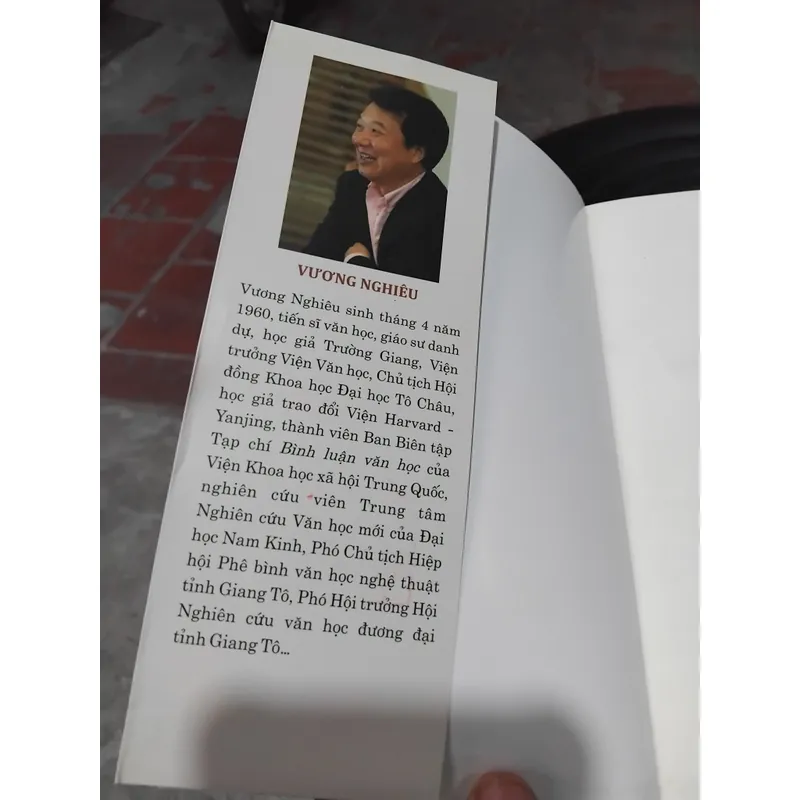 VƯƠNG NGHIÊU
Vương Nghiêu sinh tháng 4 năm
1960, tiến sĩ văn học, giáo sư danh
dự, học giả Trường Giang, Viện
trưởng Viện Văn học, Chủ tịch Hội
đồng Khoa học Đại học Tô Châu,
học giả trao đổi Viện Harvard -
Yanjing, thành viên Ban Biên tập
Tạp chí Bình luận văn học của
Viện Khoa học xã hội Trung Quốc,
nghiên cứu viên Trung tâm
Nghiên cứu Văn học mới của Đại
học Nam Kinh, Phó Chủ tịch Hiệp
hội Phê bình văn học nghệ thuật
tỉnh Giang Tô, Phó Hội trưởng Hội
Nghiên cứu văn học đương đại
tỉnh Giang Tô...